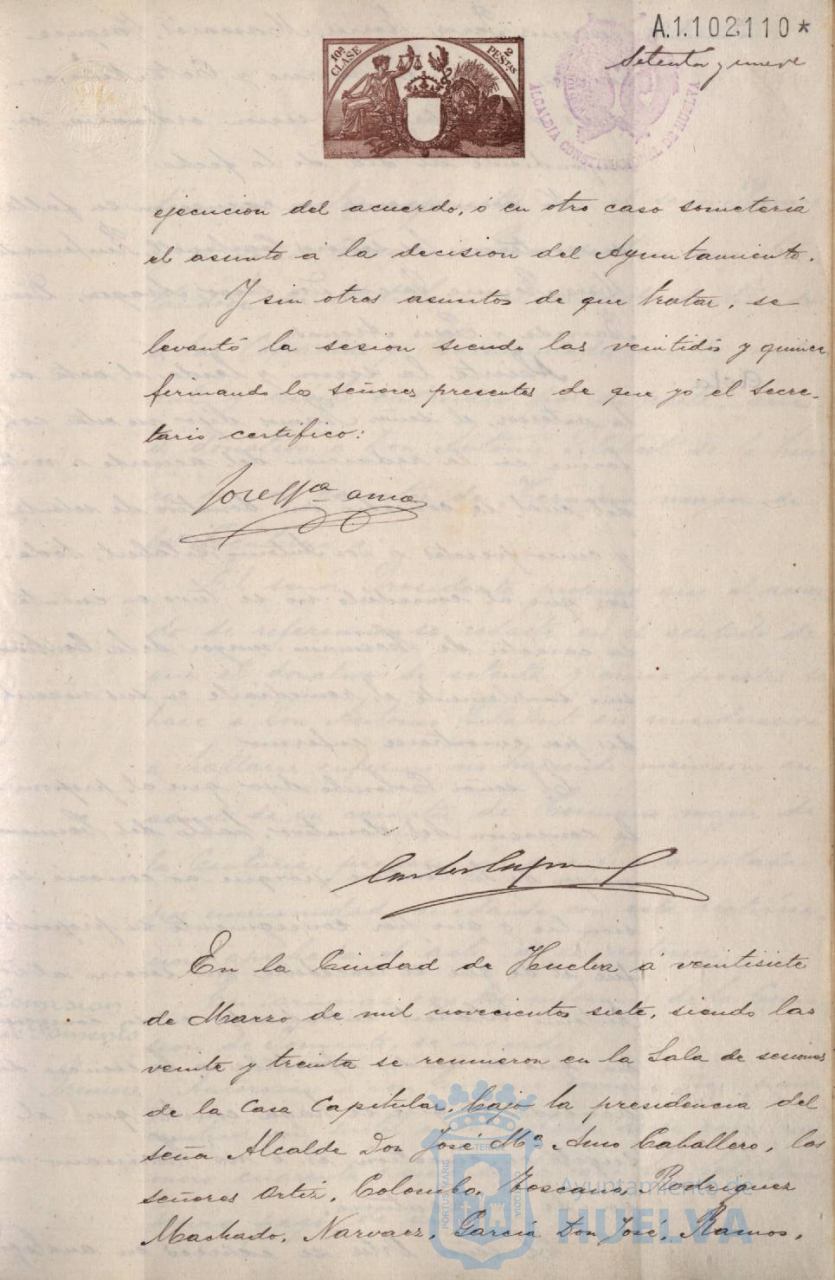 A.1.102.110*
10ª CLASE
2 PESTAS
Setenta y nueve
ALCALDIA CONSTITUCIONAL DE HUELVA
ejecucion del acuerdo, ó en otro caso sometería
el asunto á la decision del Ayuntamiento.
Y sin otros asuntos de que tratar, se
levantó la sesion siendo las veintidós y quince
firmando lo señores presentes de que yo el Secre-
tario certifico:
José Mª Amo
En la Ciudad de Huelva á veintisiete
de Marzo de mil novecientos siete, siendo las
veinte y treinta se reunieron en la Sala de sesiones
de la Casa Capitular, bajo la presidencia del
seña Alcalde Don José Mª Amo Caballero, los
señores Ortiz, Colombo, Toscano, Rodriguez
Machado, Narvaez, García Don José, Ramos,
Ayuntamiento de
HUELVA